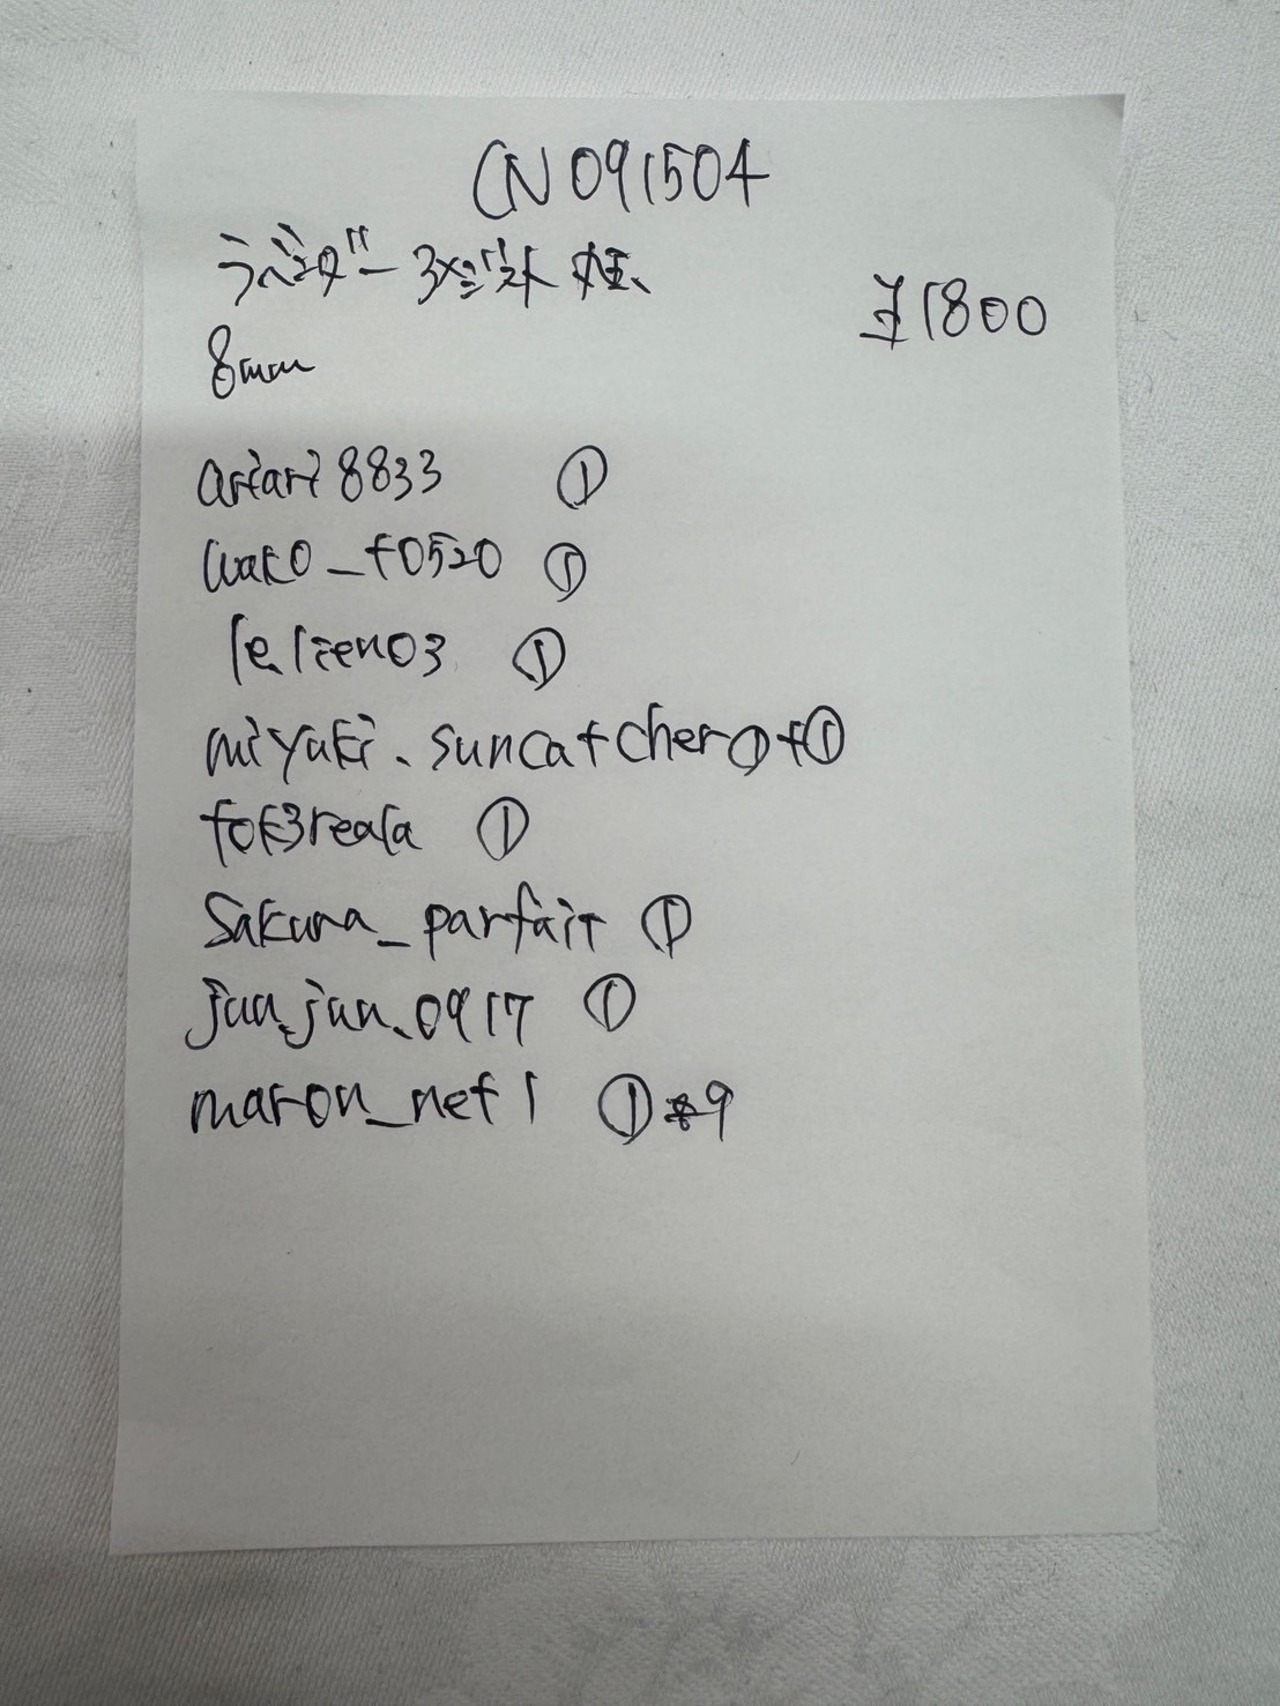 CN091504
¥1800
8mm
ariari8833 ①
wako_t0520 ①
lelien03 ①
miyuki.suncatcher ①+①
tok3reala ①
Sakura_parfait ①
jun.jun.0917 ①
maron_net1 ①*9